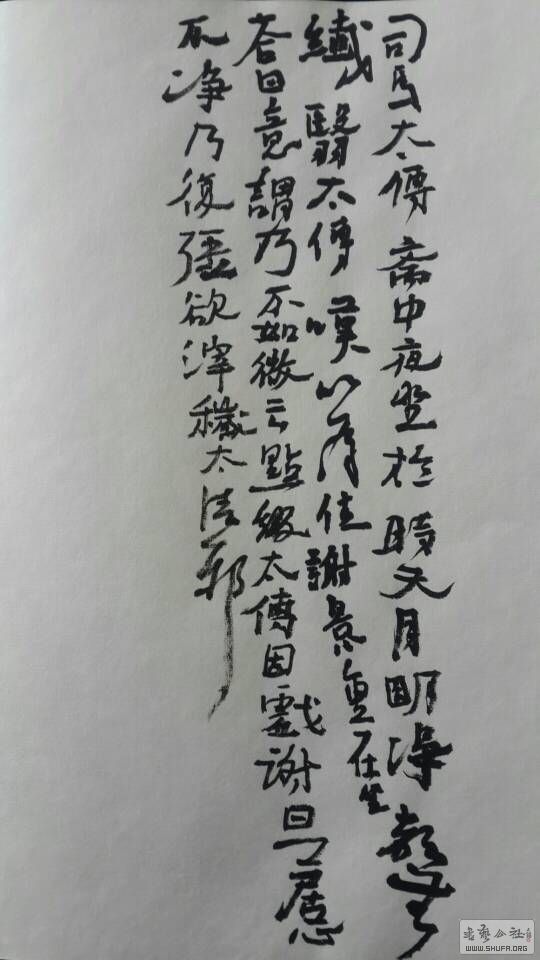 司馬太傅齋中夜坐於時天月明淨都無
纖翳太傅嘆以為佳謝景重在坐
答曰意謂乃不如微云點綴太傅因戲謝曰卿居心
不淨乃復彊欲滓穢太清邪
书艺公社
WWW.SHUFA.ORG